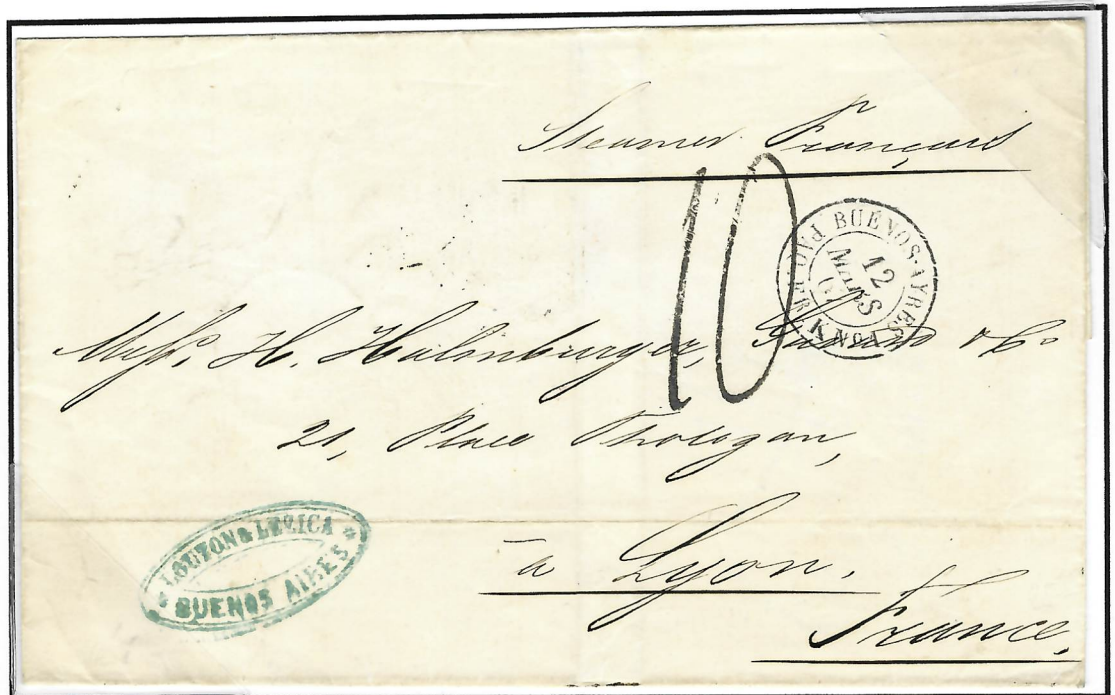 Steamer Français
10
BUENOS-AYRES
PAQ. FR. K No 1
12
MARS
Mess. H. Hulinburger, & Co
21, Place Tholozan,
à Lyon.
France.
LOUZON & LEZICA
BUENOS AIRES